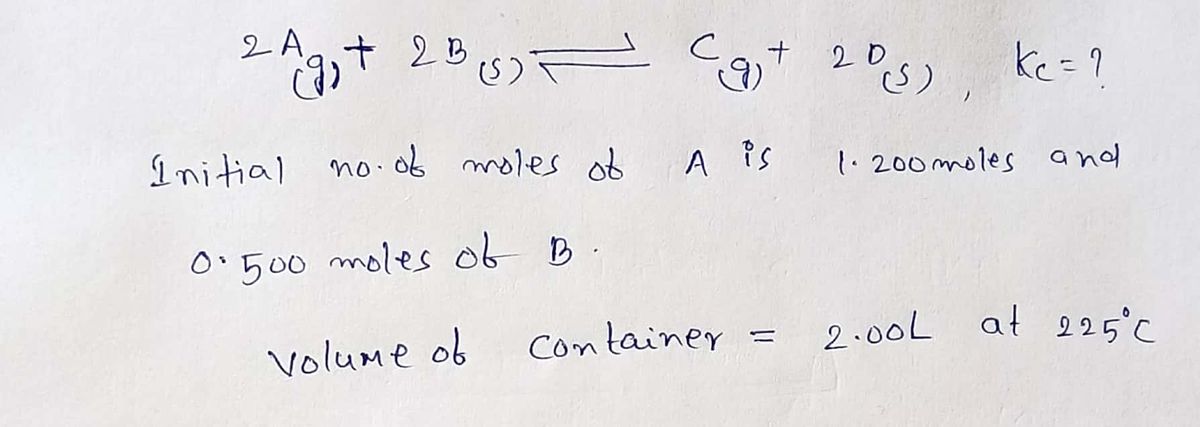 2A(g) + 2B(s) ⇌ C(g) + 2D(s), Kc = ?
Initial no. of moles of A is 1.200 moles and
0.500 moles of B.
Volume of Container = 2.00L at 225°C